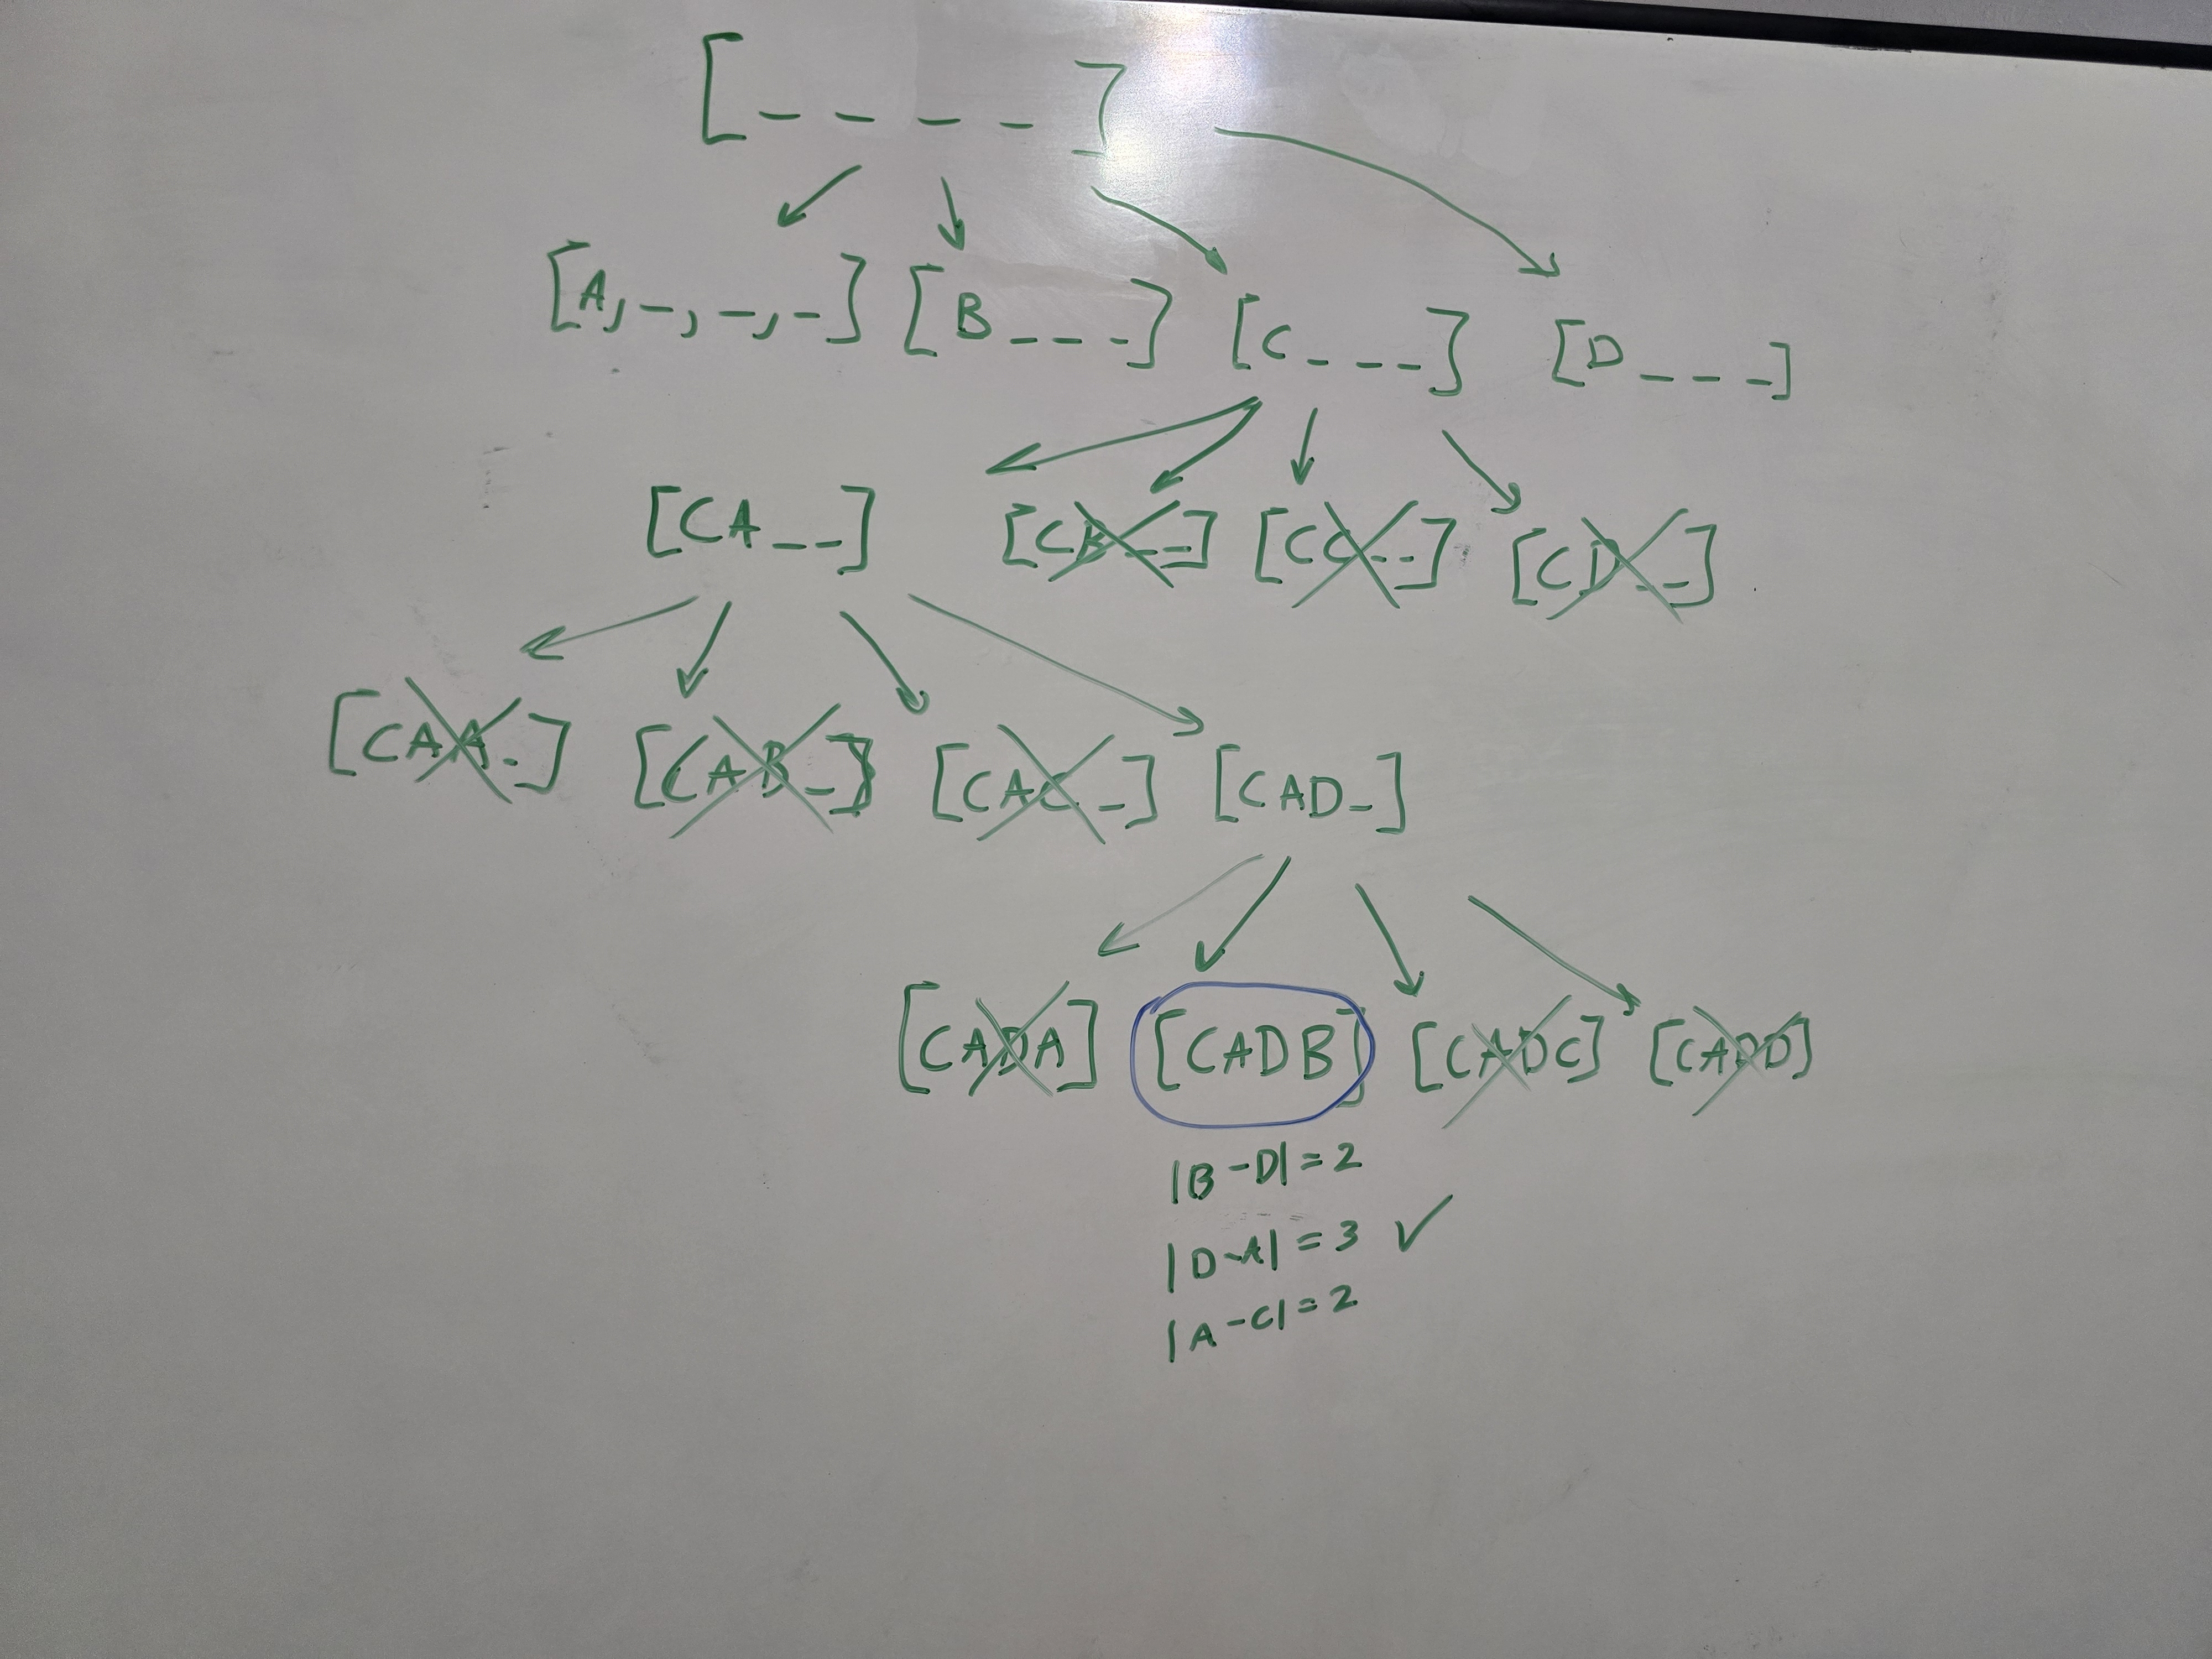 [_ _ _ _]
[A, _, _, _] [B _ _ _] [C _ _ _] [D _ _ _]
[CA _ _] [CB _ _] [CC _ _] [CD _ _]
[CAA _] [CAB _] [CAC _] [CAD _]
[CADA] [CADB] [CADC] [CADD]
|B-D| = 2
|D-A| = 3 ✓
|A-C| = 2